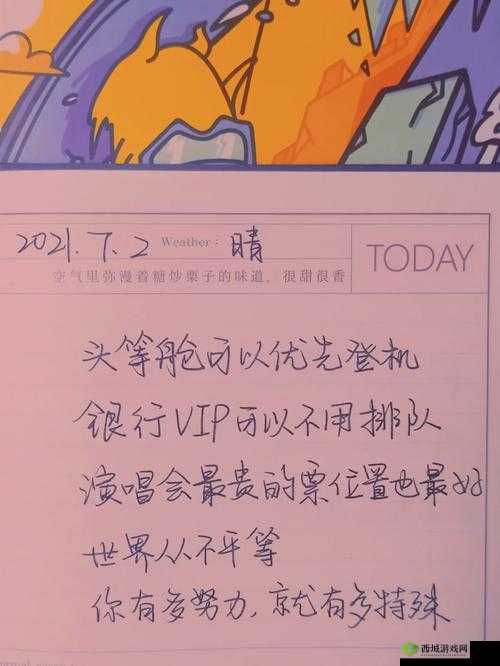 2021.7.2 Weather: 晴
TODAY
空气里弥漫着糖炒栗子的味道，很甜很香
头等舱可以优先登机
银行VIP可以不用排队
演唱会最贵的票位置也最好
世界从不平等
你有多努力，就有多特殊
西城游戏网